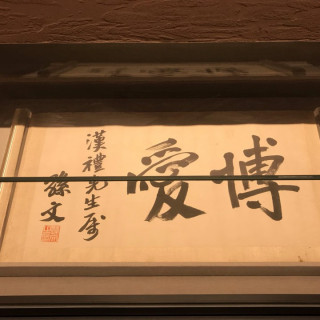 博愛
漢禮先生属
孫文